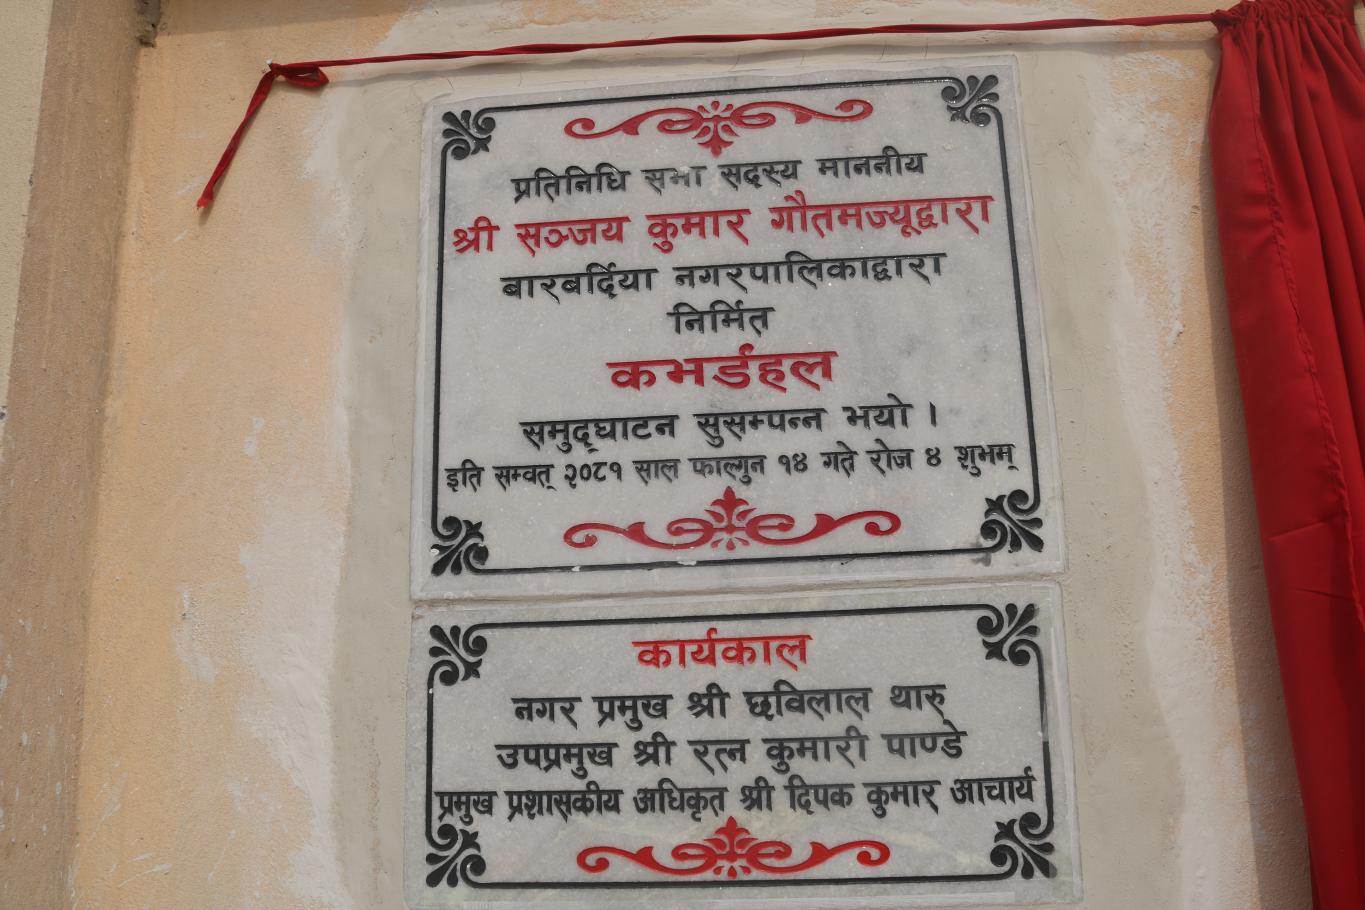 प्रतिनिधि सभा सदस्य माननीय
श्री सञ्जय कुमार गौतमज्यूद्वारा
बारबर्दिया नगरपालिकाद्वारा
निर्मित
कभर्डहल
समुद्घाटन सुसम्पन्न भयो ।
इति सम्वत् २०८१ साल फाल्गुन १४ गते रोज ४ शुभम्
कार्यकाल
नगर प्रमुख श्री छविलाल थारु
उपप्रमुख श्री रत्न कुमारी पाण्डे
प्रमुख प्रशासकीय अधिकृत श्री दिपक कुमार आचार्य